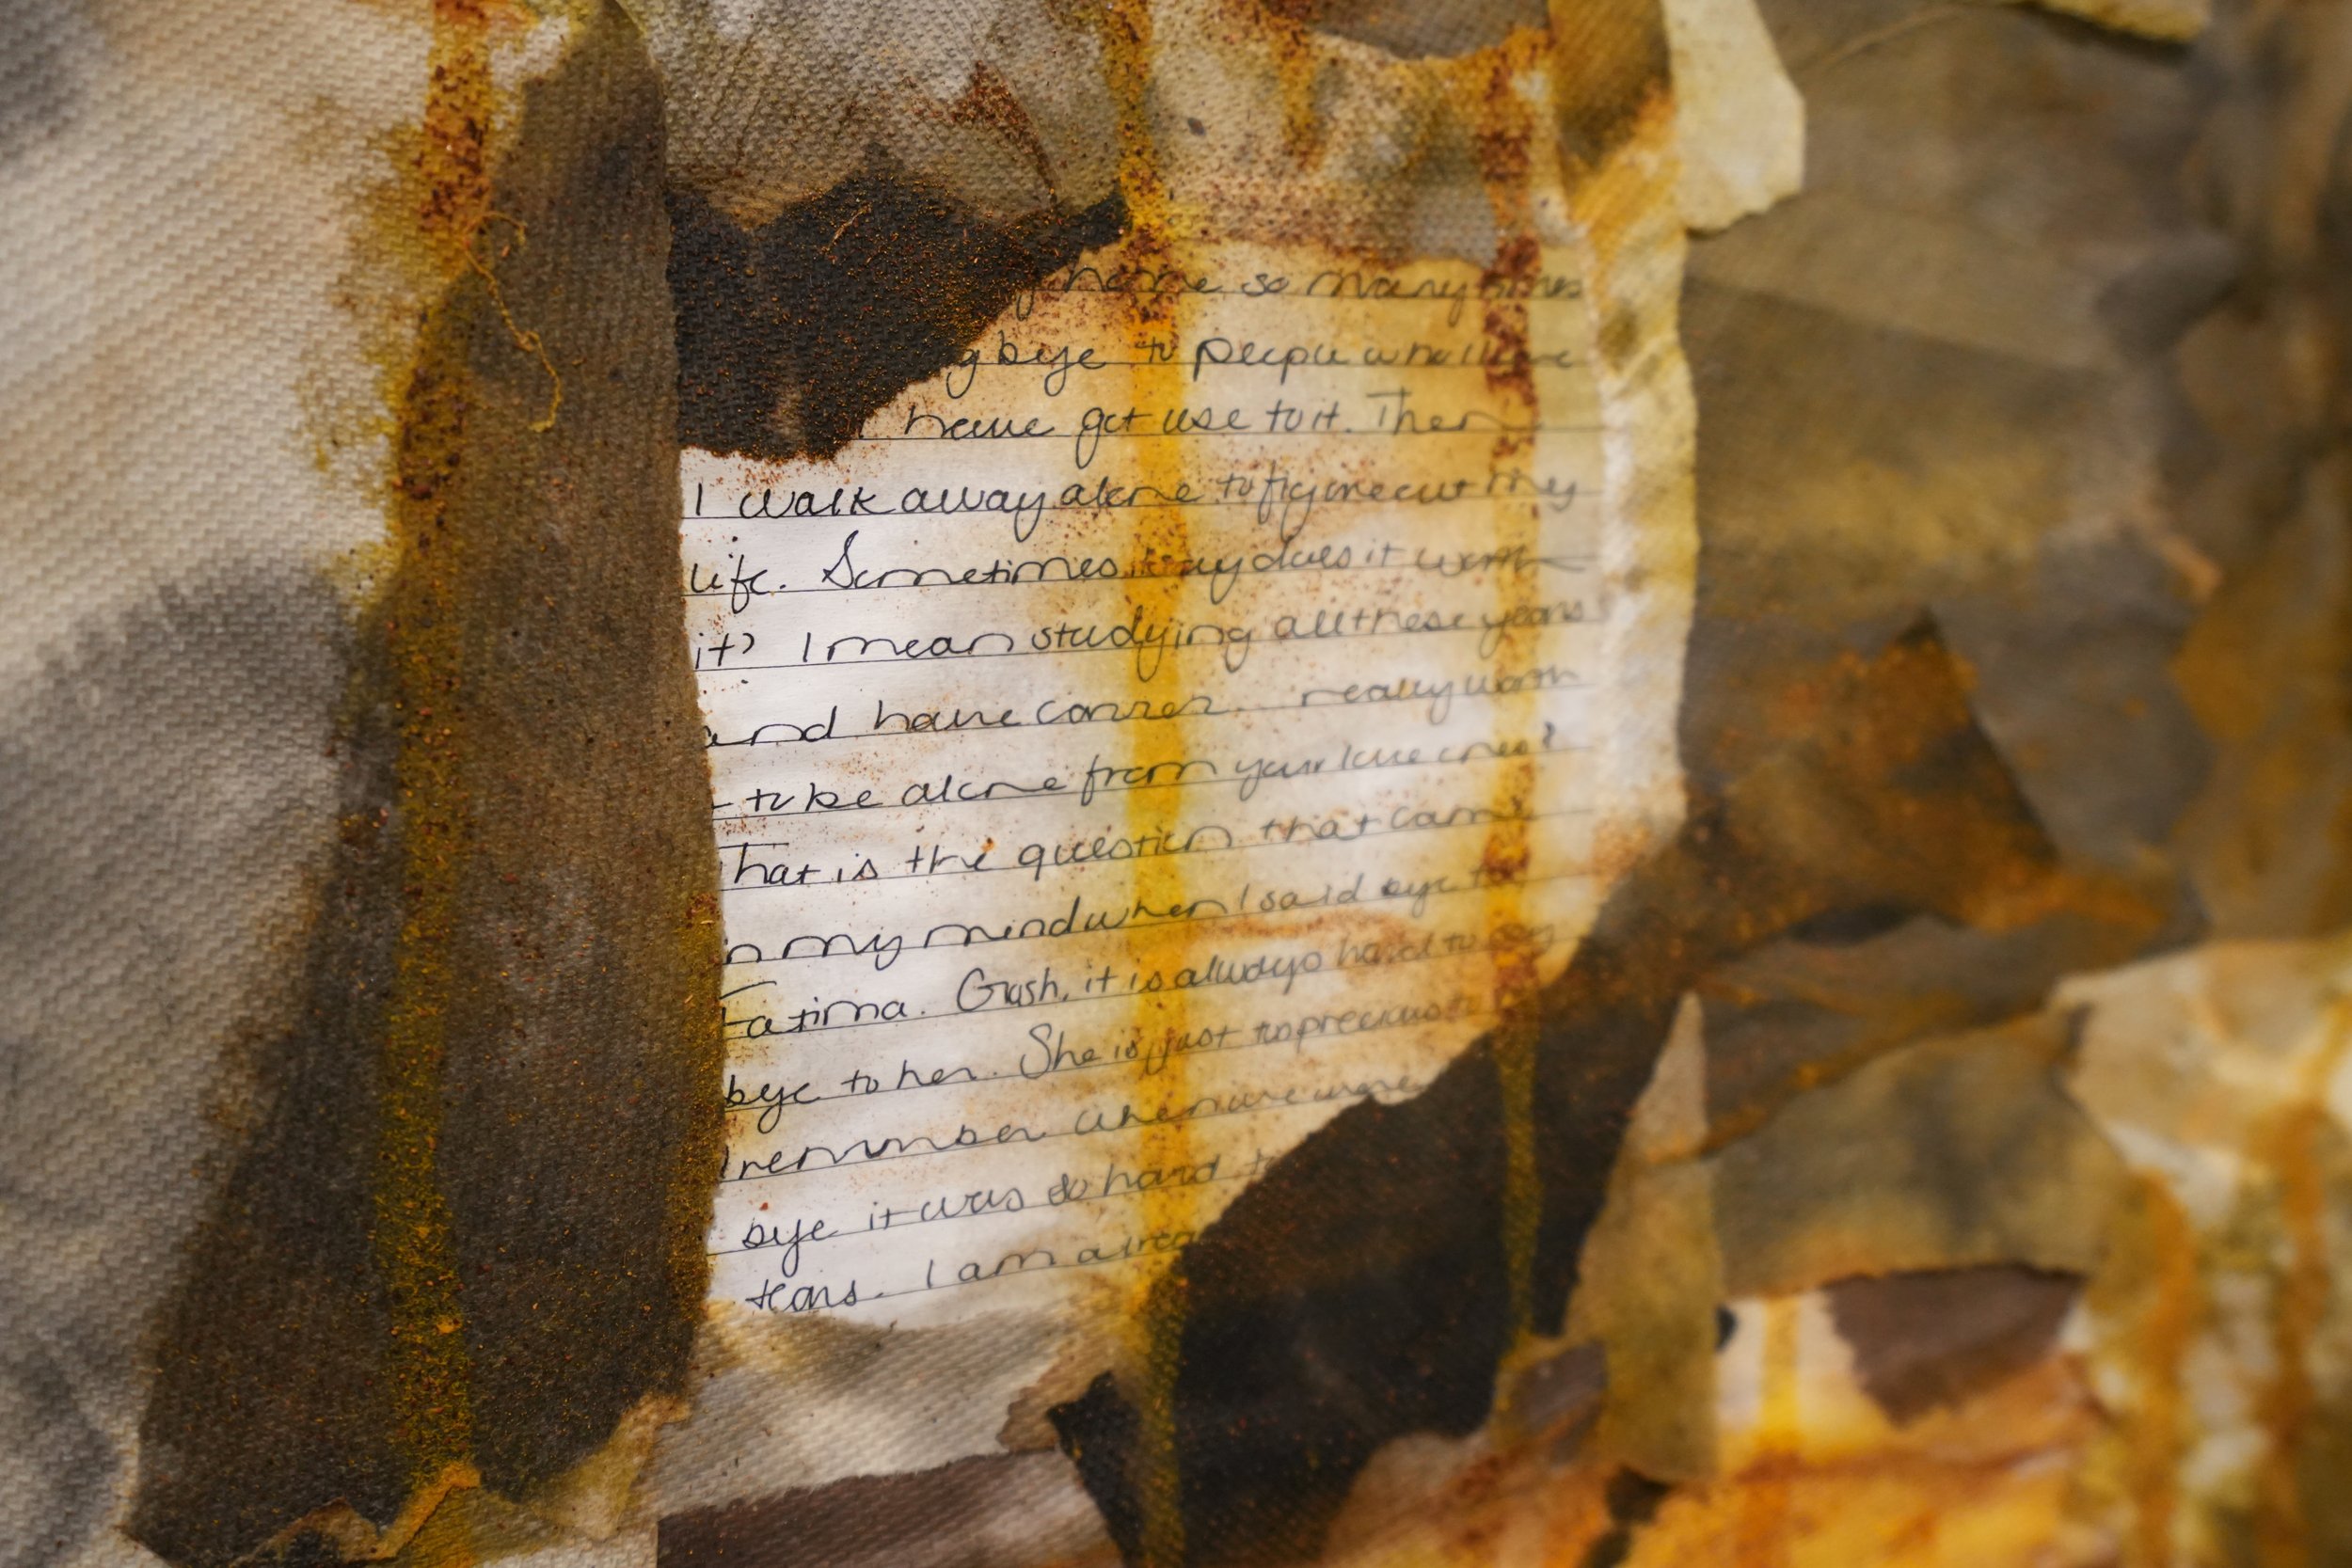 home so many times
bye to people who
have got use to it. Then
I walk away alone to figure out my
life. Sometimes does it worth
it? I mean studying all these years
and have carrer. really worth
to be alone from your love ones?
That is the question that came
in my mind when I said bye to
Fatima. Gush, it is always hard to say
bye to her. She is just to precious to
I remember when we were
bye it was so hard to
tears. I am